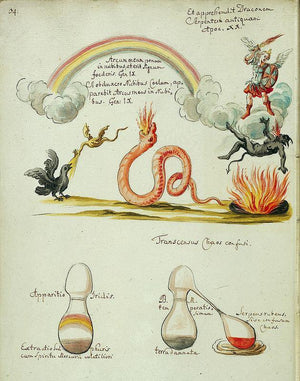 34.
Et apprehendit Draconem
Serpentem antiquum
Apoc. XX.
Arcum meum ponam
in nubibus et erit signum
foederis. Gen. IX.
Obduxero Nubibus Coelum, ap-
parebit Arcus meus in Nubi-
bus. Gen. IX
Transcensus Chaos confusi.
Appositio Iridis.
Extractio
cum spiritu Mercurii
terra damnata
Serpens rubens
sive confusum
Chaos.